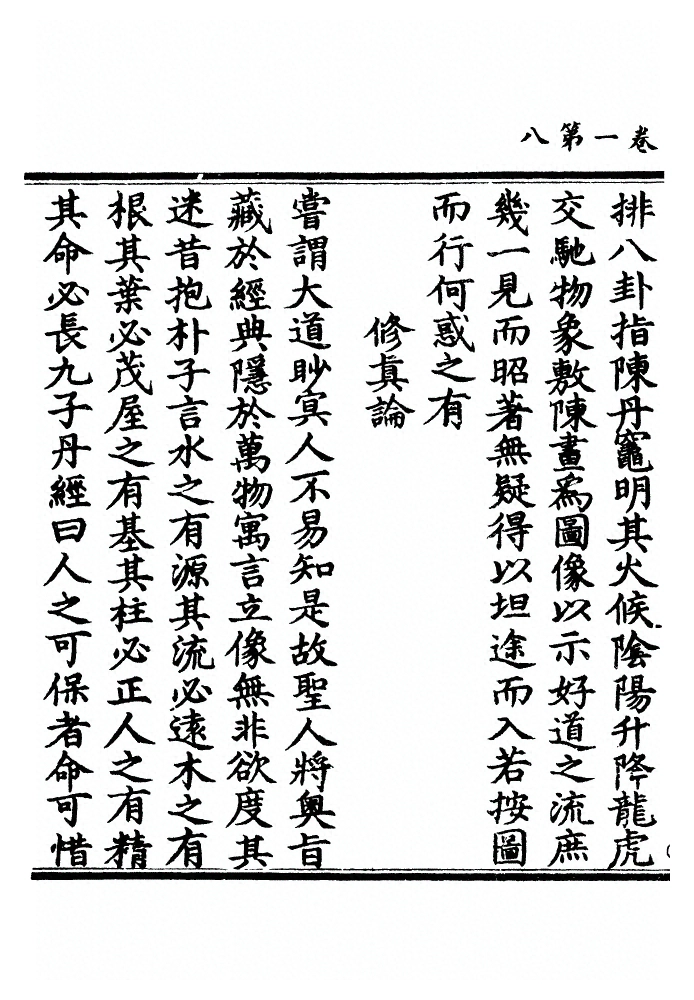 卷一第八
排八卦指陳丹竈明其火候陰陽升降龍虎
交馳物象敷陳畫為圖像以示好道之流庶
幾一見而昭著無疑得以坦途而入若按圖
而行何惑之有
修真論
嘗謂大道眇冥人不易知是故聖人將奧旨
藏於經典隱於萬物寓言立像無非欲度其
迷昔抱朴子言水之有源其流必遠木之有
根其葉必茂屋之有基其柱必正人之有精
其命必長九子丹經曰人之可保者命可惜